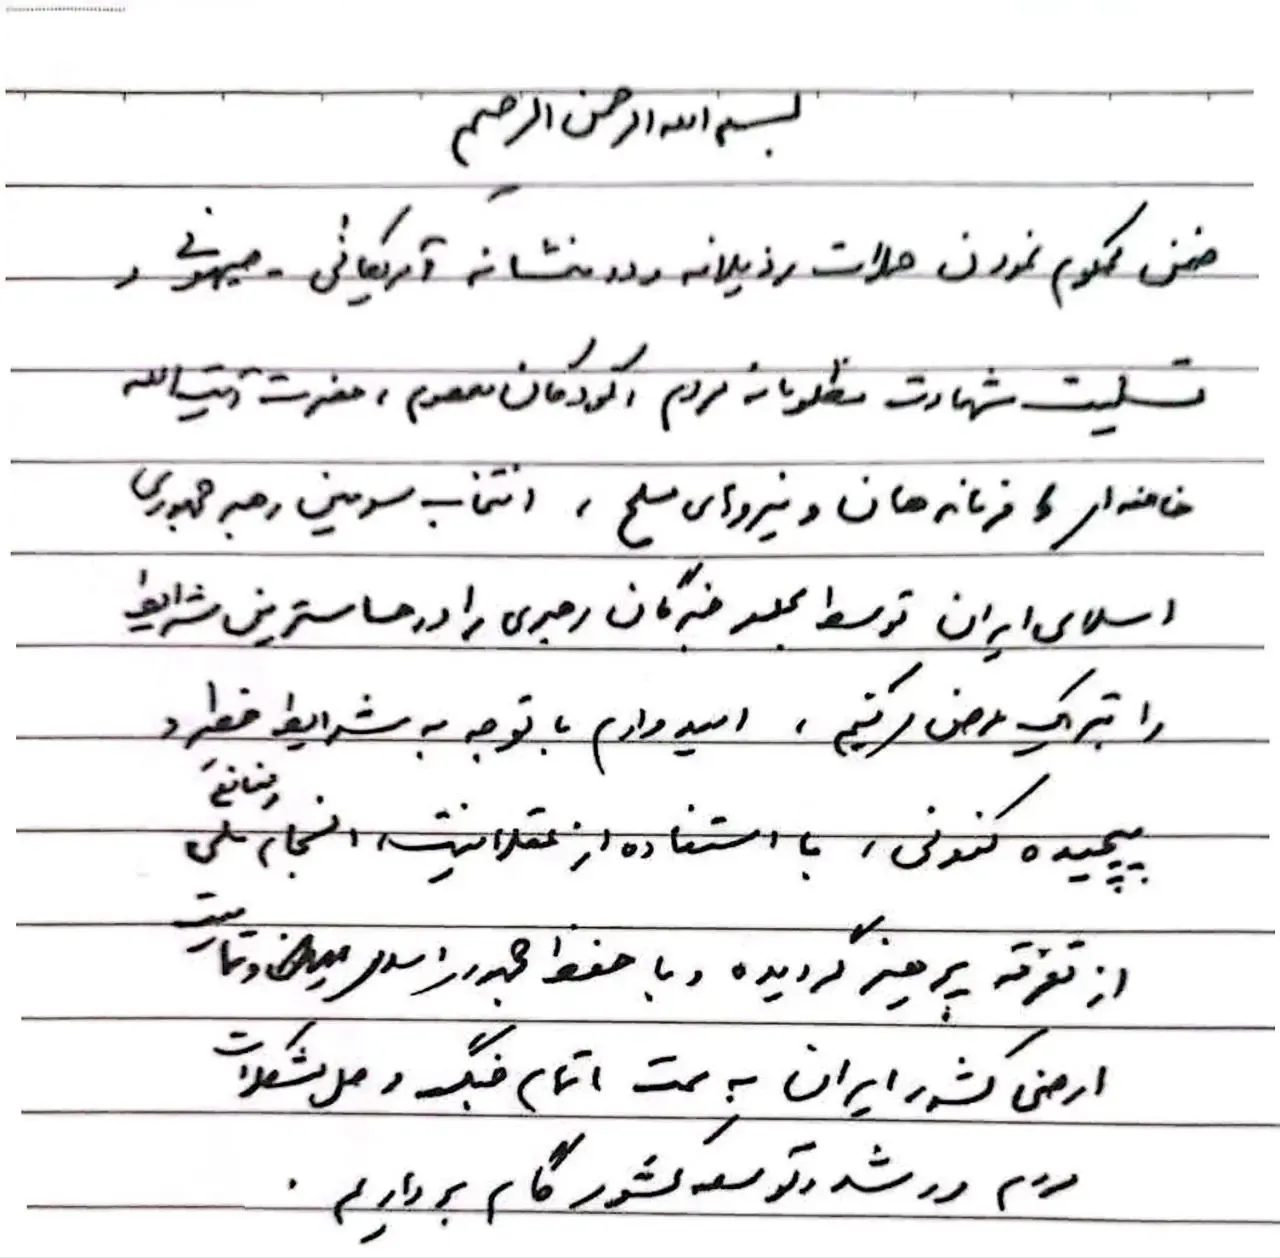 بسم الله الرحمن الرحیم
ضمن محکوم نمودن حملات رذیلانه و ددمنشانه آمریکائی - صیهونی و
تسلیت شهادت مظلومانه مردم، کودکان معصوم، حضرت آیت الله
خامنه‌ای و فرماندهان و نیروهای مسلح، انتخاب سومین رهبر جمهوری
اسلامی ایران توسط مجلس خبرگان رهبری را در حساسترین شرایط
را تبریک عرض میکنیم، امیدوارم با توجه به شرایط خطیر و
پیچیده کنونی، با استفاده از عقلانیت، انسجام ملی
از تفرقه پرهیز گردیده و با حفظ جمهوری اسلامی و تمامیت
ارضی کشور ایران به سمت اتمام جنگ و حل مشکلات
مردم و رشد و توسعه کشور گام برداریم.